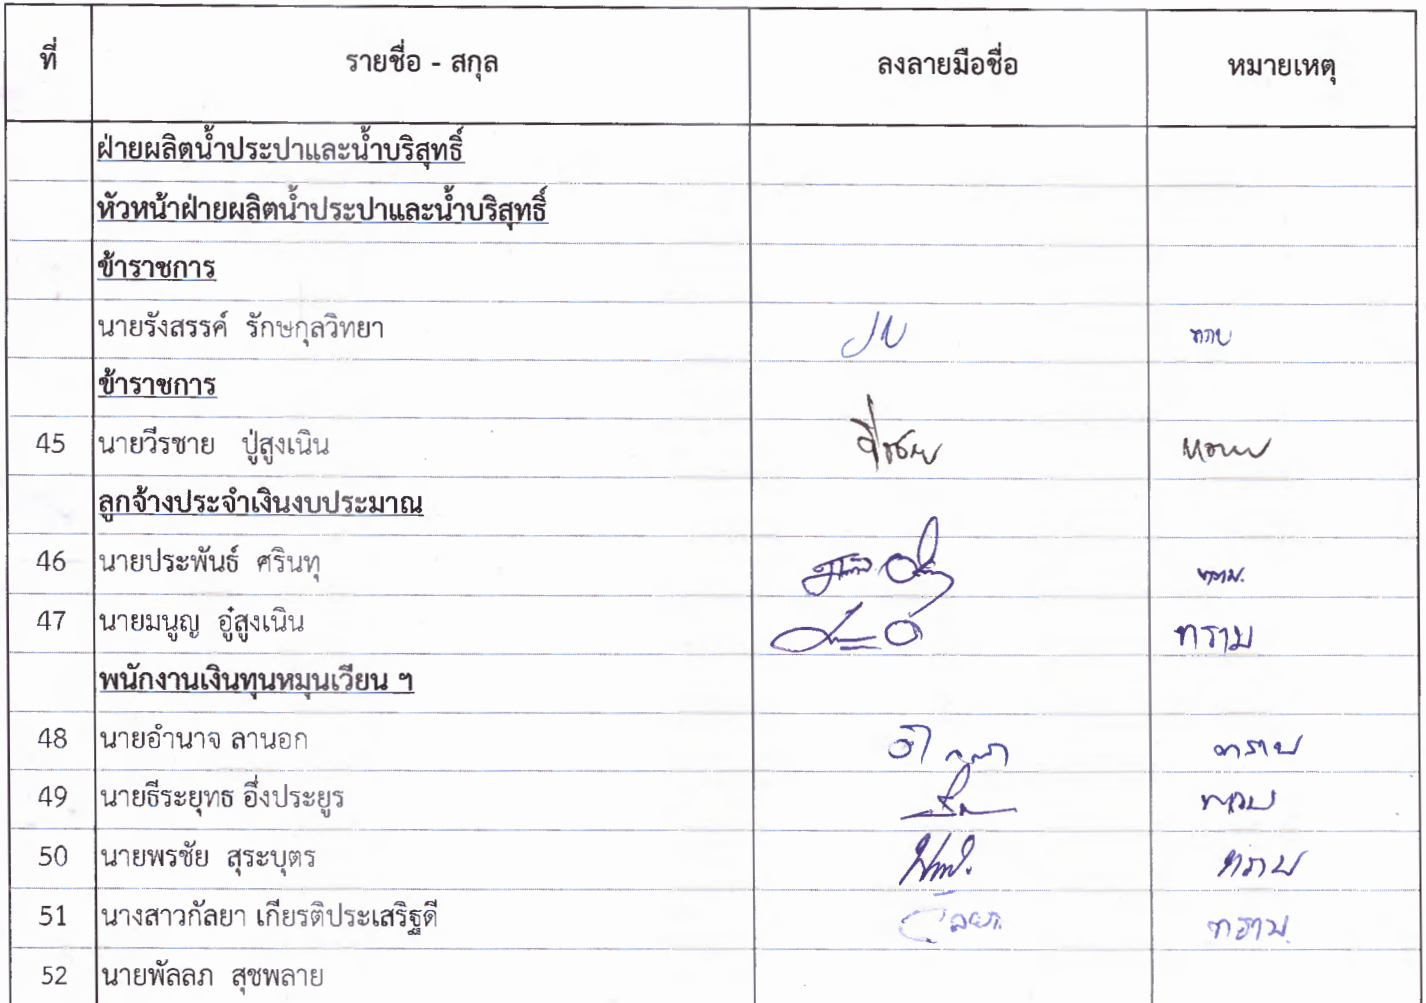 ที่ รายชื่อ - สกุล ลงลายมือชื่อ หมายเหตุ
ฝ่ายผลิตน้ำประปาและน้ำบริสุทธิ์
หัวหน้าฝ่ายผลิตน้ำประปาและน้ำบริสุทธิ์
ข้าราชการ
นายรังสรรค์ รักษกุลวิทยา
ข้าราชการ
45 นายวีรชาย ปู่สูงเนิน
ลูกจ้างประจำเงินงบประมาณ
46 นายประพันธ์ ศรินทุ
47 นายมนูญ อู๋สูงเนิน ทราบ
พนักงานเงินทุนหมุนเวียน ฯ
48 นายอำนาจ ลานอก ทราบ
49 นายธีระยุทธ อึ่งประยูร ทราบ
50 นายพรชัย สุระบุตร ทราบ
51 นางสาวกัลยา เกียรติประเสริฐดี กัลยา ทราบ
52 นายพัลลภ สุชพลาย